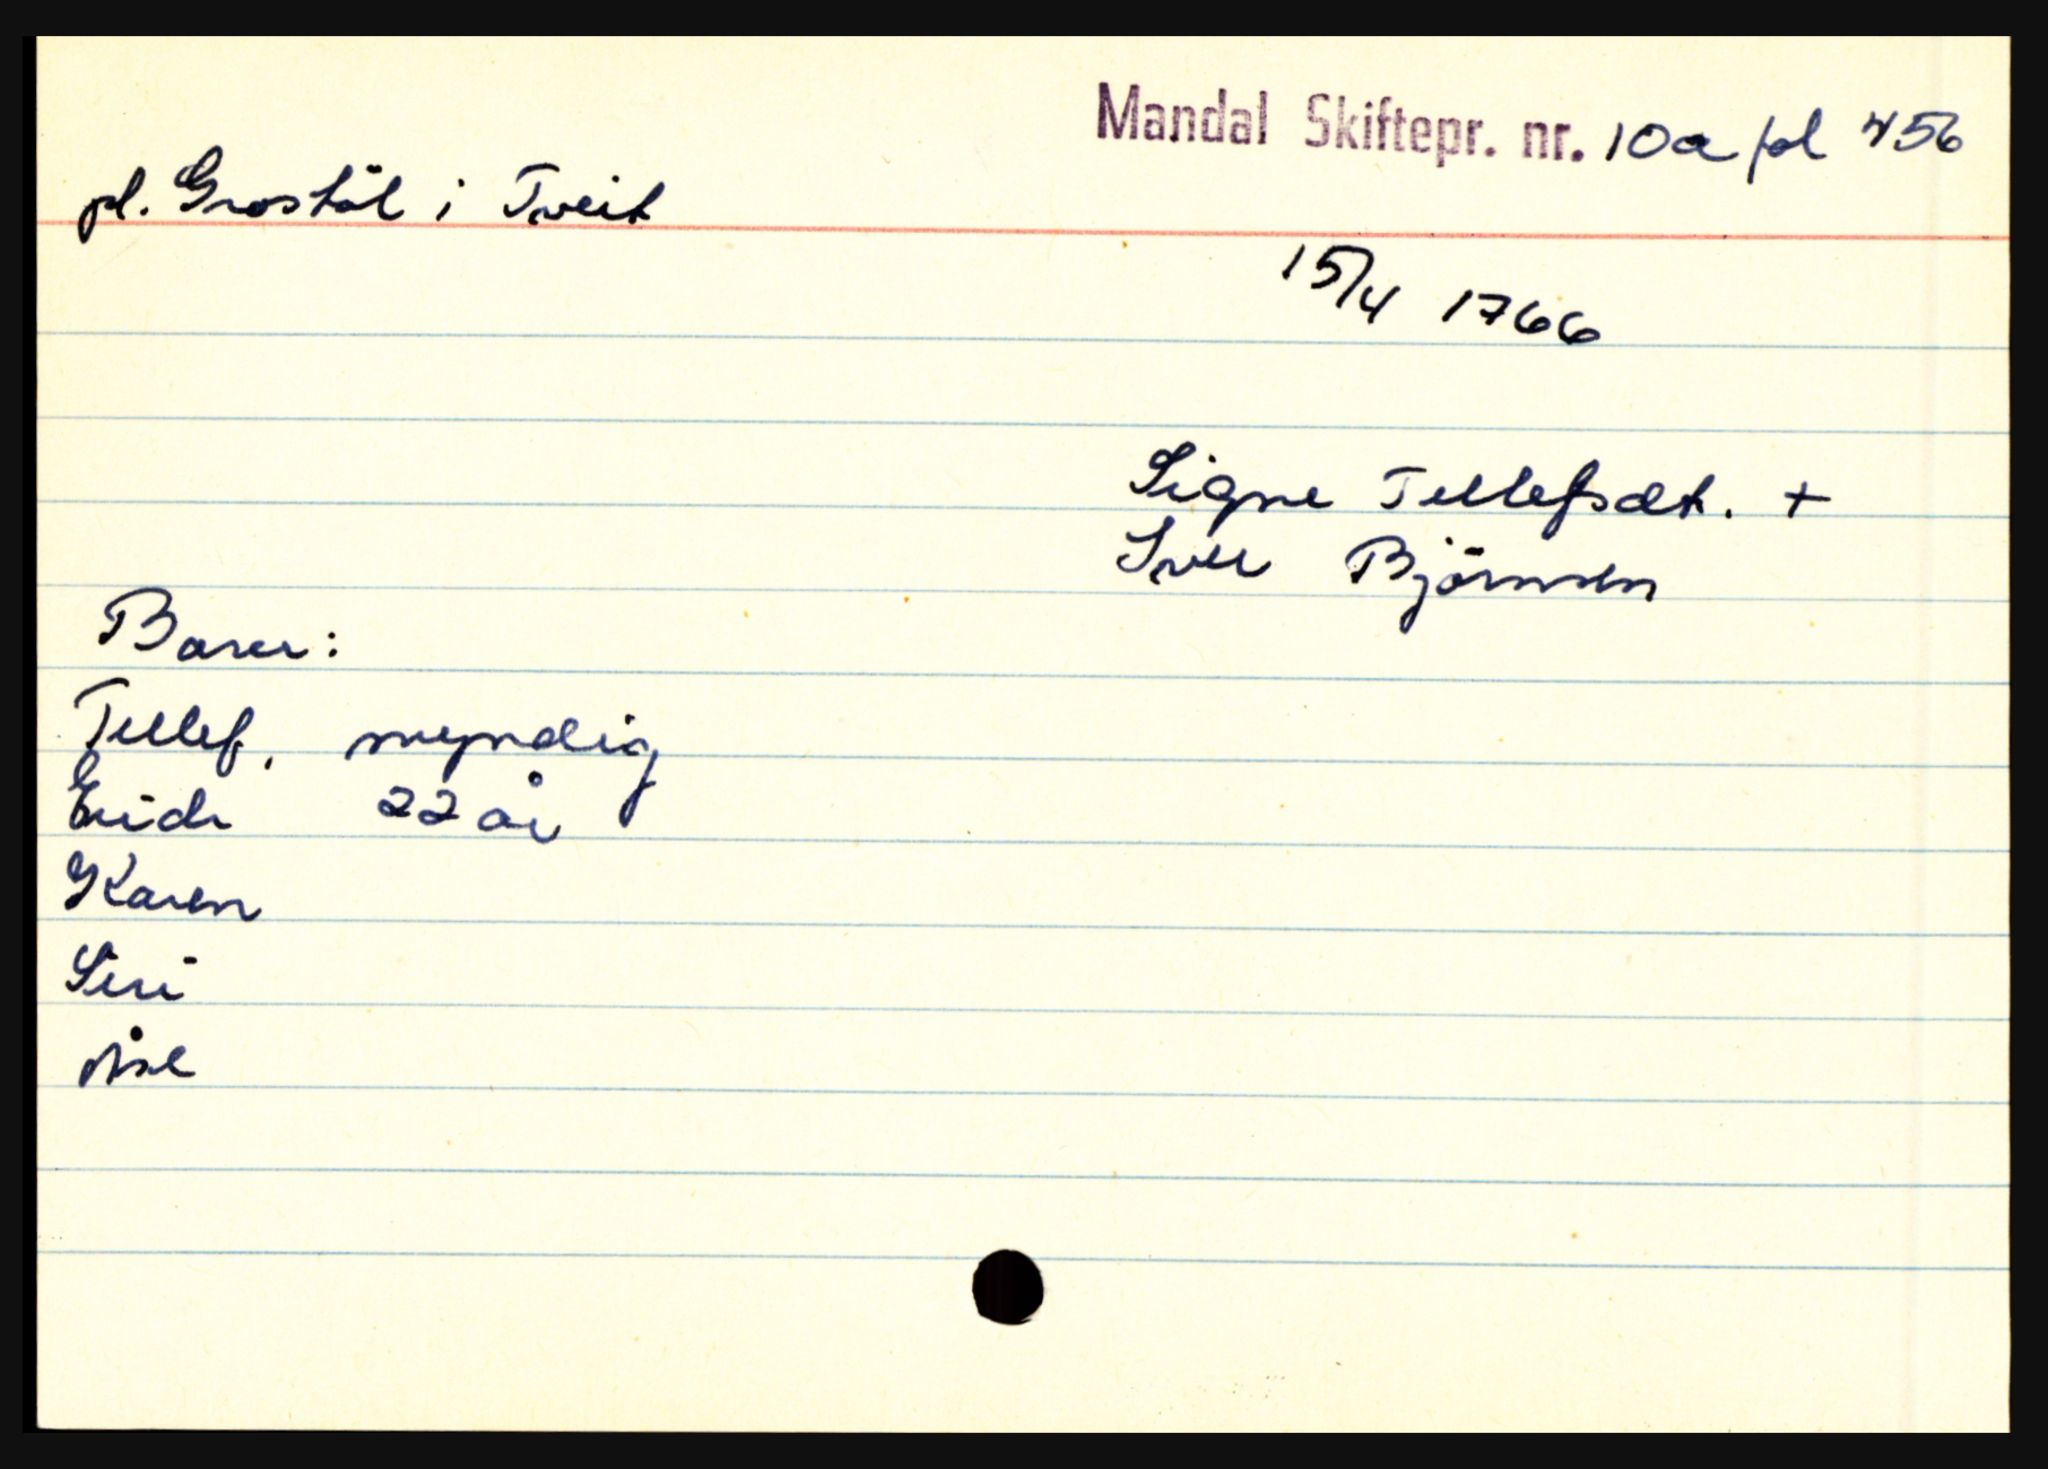 Mandal Skiftepr. nr. 10a fol 456
pl. Grostöl i Tveit
15/4 1766
Signe Tellefsdt. +
Iver Björnsen
Barer:
Tellef, myndig
Erich 22 år
Karen
Siri
Åse